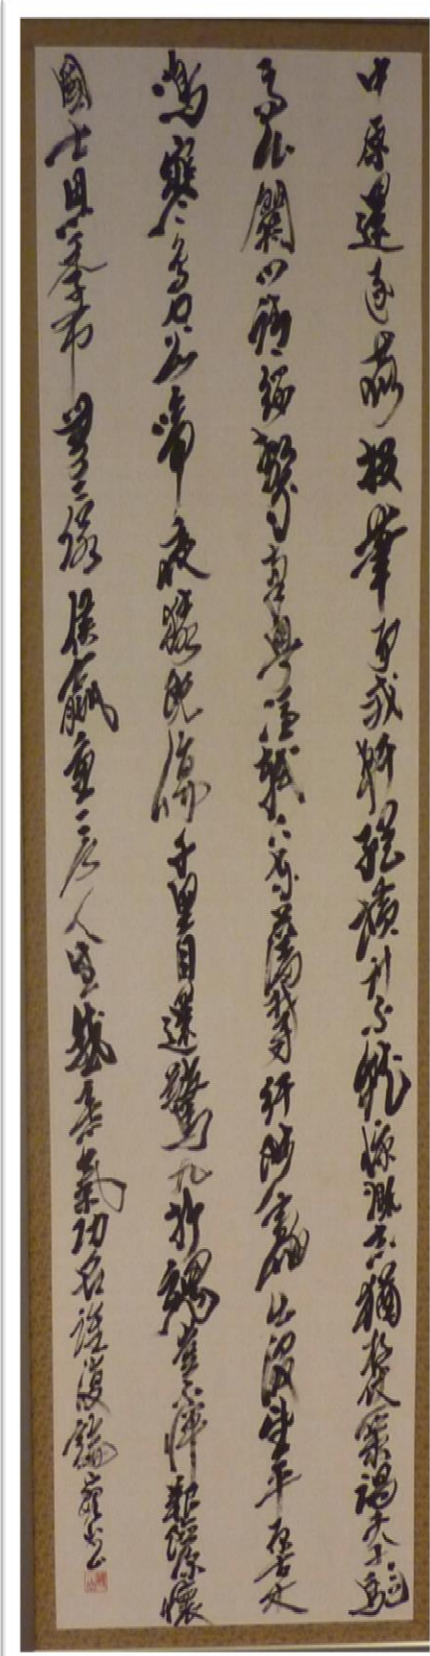 中原還逐鹿投筆事戎軒縱橫計不就慷慨志猶存杖策謁天子驅
馬出關門請纓繫南粤憑軾下東藩鬱紆陟高岫出沒望平原古木
鳴寒鳥空山啼夜猿既傷千里目還驚九折魂豈不憚艱險深懷
國士恩季布無二諾侯嬴重一言人生感意氣功名誰復論